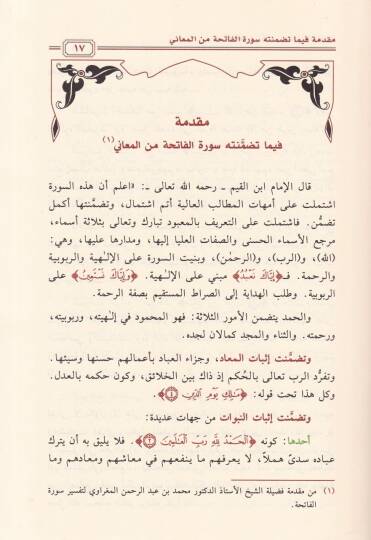 مقدمة فيما تضمنته سورة الفاتحة من المعاني
١٧
مقدمة
فيما تضمَّنته سورة الفاتحة من المعاني(١)
قال الإمام ابن القيم ـ رحمه الله تعالى ـ: «اعلم أن هذه السورة
اشتملت على أمهات المطالب العالية أتم اشتمال، وتضمَّنتها أكمل
تضمُّن. فاشتملت على التعريف بالمعبود تبارك وتعالى بثلاثة أسماء،
مرجع الأسماء الحسنى والصفات العليا إليها، ومدارها عليها، وهي:
(الله)، و(الرب)، و(الرحمٰن)، وبنيت السورة على الإلٰهية والربوبية
والرحمة. فـ﴿إِيَّاكَ نَعْبُدُ﴾ مبني على الإلٰهية. ﴿وَإِيَّاكَ نَسْتَعِينُ﴾ على
الربوبية. وطلب الهداية إلى الصراط المستقيم بصفة الرحمة.
والحمد يتضمن الأمور الثلاثة: فهو المحمود في إلٰهيته، وربوبيته،
ورحمته. والثناء والمجد كمالان لجده.
وتضمَّنت إثبات المعاد، وجزاء العباد بأعمالهم حسنها وسيئها.
وتفرُّد الرب تعالى بالحُكم إذ ذاك بين الخلائق، وكون حكمه بالعدل.
وكل هذا تحت قوله: ﴿مَٰلِكِ يَوْمِ ٱلدِّينِ ٤﴾.
وتضمَّنت إثبات النبوات من جهات عديدة:
أحدها: كونه ﴿ٱلْحَمْدُ لِلَّهِ رَبِّ ٱلْعَٰلَمِينَ ٢﴾. فلا يليق به أن يترك
عباده سدىً هملاً، لا يعرفهم ما ينفعهم في معاشهم ومعادهم وما
(١) من مقدمة فضيلة الشيخ الأستاذ الدكتور محمد بن عبد الرحمن المغراوي لتفسير سورة
الفاتحة.